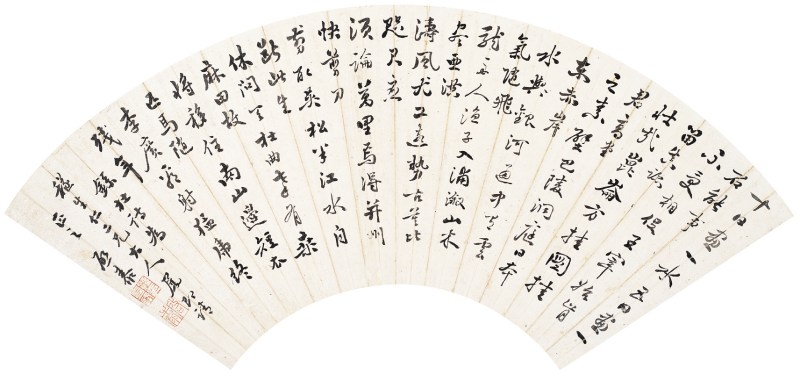 十日畫一水五日畫一
石能事
不受相促迫王宰始肯
留真
壯哉崐崙方壺圖挂
君高堂
之素壁巴陵洞庭日本
東赤岸
水與銀河通中有雲
氣隨飛
龍舟人漁子入浦溆山木
盡亞洪
濤風尤工遠勢古莫比
咫尺應
須論萬里焉得并州
快剪刀
剪取吳松半江水自
斷此生
休問天杜曲幸有桑
麻田故
將移住南山邊短衣
匹馬隨
李廣看射猛虎終
殘年
錄杜詩為
仁二兄大人
正之